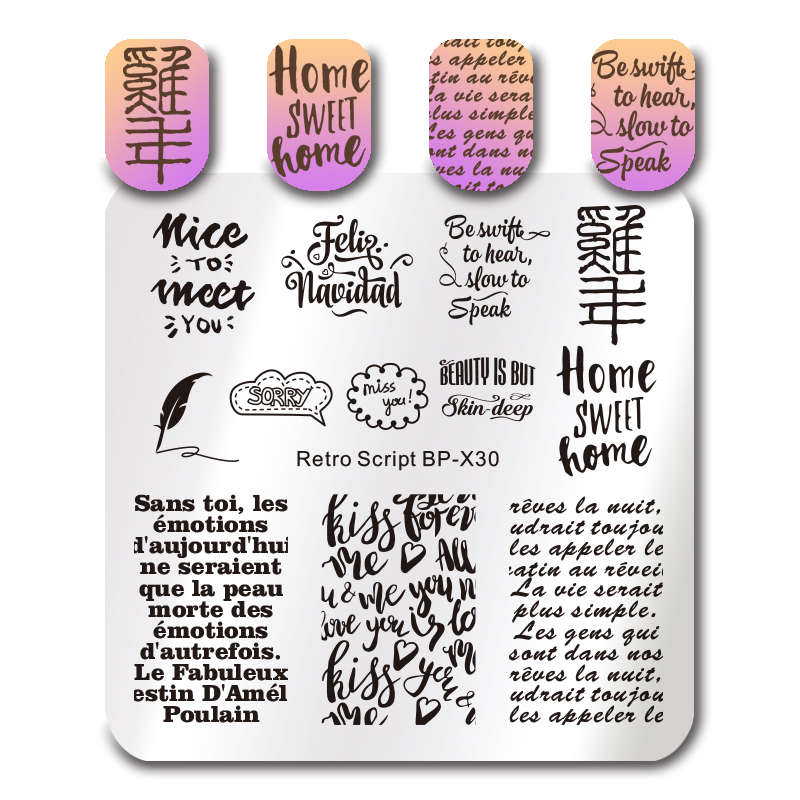 Home
SWEET
home
rait touj
s appeler
tin au rêve
la vie sera
lus simple
Les gens qu
ont dans no
êves la nu
Be swift
to hear,
slow to
Speak
Nice
TO
meet
YOU
Feliz
Navidad
Be swift
to hear,
slow to
Speak
SORRY
miss
you!
BEAUTY IS BUT
Skin-deep
Home
SWEET
home
Retro Script BP-X30
Sans toi, les
émotions
d'aujourd'hui
ne seraient
que la peau
morte des
émotions
d'autrefois.
Le Fabuleux
estin D'Amél
Poulain
kiss forev
me All
u & me you n
love you is lo
kiss you
me
rêves la nuit,
udrait toujou
les appeler le
atin au révei
La vie serait
plus simple.
Les gens qui
sont dans nos
rêves la nuit,
udrait toujou
les appeler le